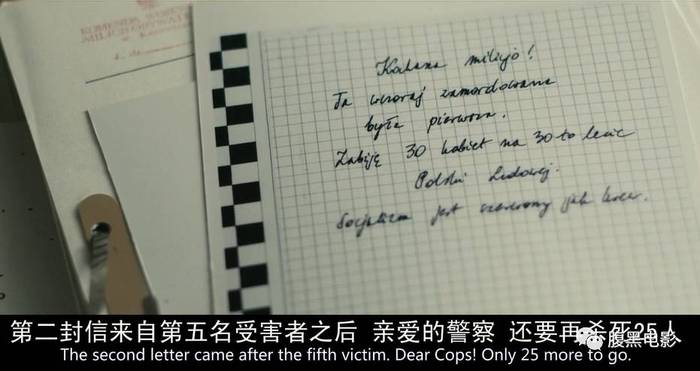 KOMENDA
MILICJI
Kochana milicjo!
Ta wczoraj zamordowana
była pierwsza.
Zabiję 30 kobiet na 30 to lecie
Polski Ludowej.
Socjalizm jest czerwony jak krew.
第二封信来自第五名受害者之后 亲爱的警察 还要再杀死25人
腹黑电影
The second letter came after the fifth victim. Dear Cops! Only 25 more to go.